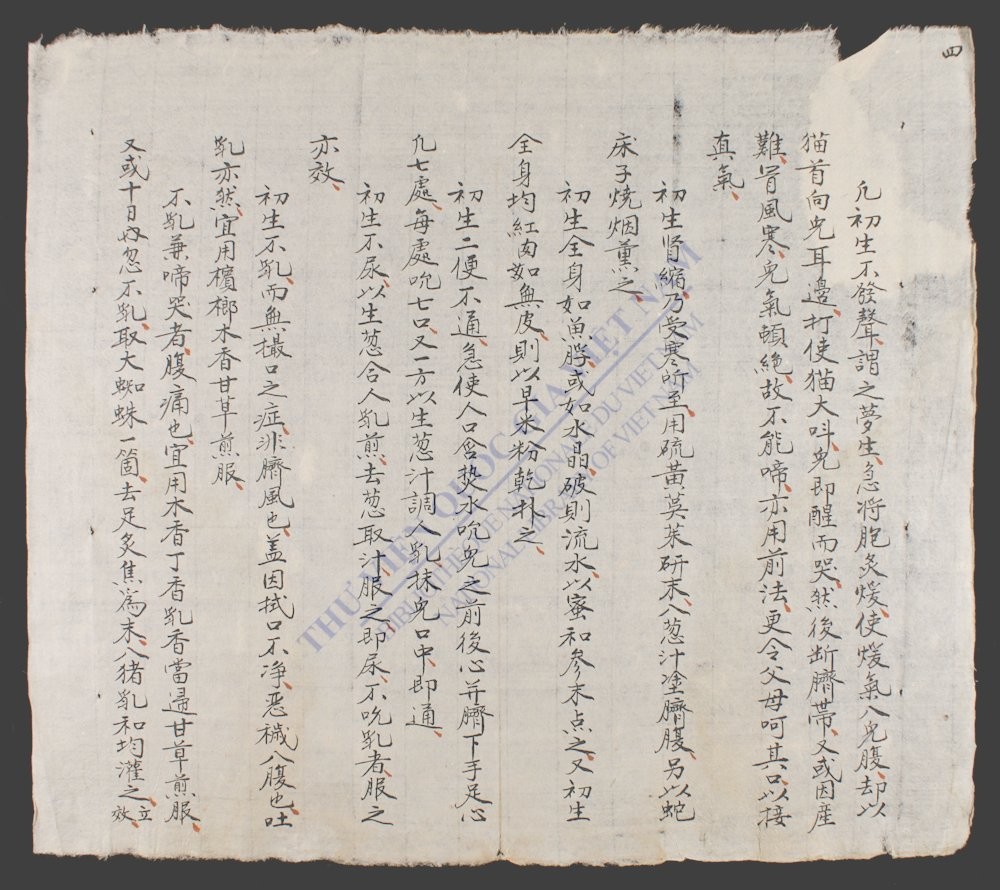 四
凢初生不發聲謂之夢生急将胞炙煖使煖氣入児腹却以
猫首向児耳邉打使猫大呌児即醒而哭然後断臍帯又或因産
難冒風寒児氣頓絶故不能啼亦用前法更令父母呵其口以接
真氣
初生肾縮乃受寒所至用硫黄茱萸研末入葱汁塗臍腹另以蛇
床子燒烟薰之
初生全身如魚脬或如水晶破則流水以蜜和参末点之又初生
全身均紅肉如無皮則以早米粉乾扑之
初生二便不通急使人口含热水吮児之前後心并臍下手足心
凢七處每處吮七口又一方以生葱汁調人乳抹児口中即通
初生不尿以生葱合人乳煎去葱取汁服之即尿不吮乳者服之
亦效
初生不乳而無撮口之症非臍風也盖因拭口不净惡穢入腹也吐
乳亦然宜用檳榔木香甘草煎服
不乳兼啼哭者腹痛也宜用木香丁香乳香當歸甘草煎服
又或十日内忽不乳取大蜘蛛一箇去足炙焦爲末入猪乳和均灌之立效
THƯ VIỆN QUỐC GIA VIỆT NAM
BIBLIOTHÈQUE NATIONALE DU VIETNAM
NATIONAL LIBRARY OF VIETNAM